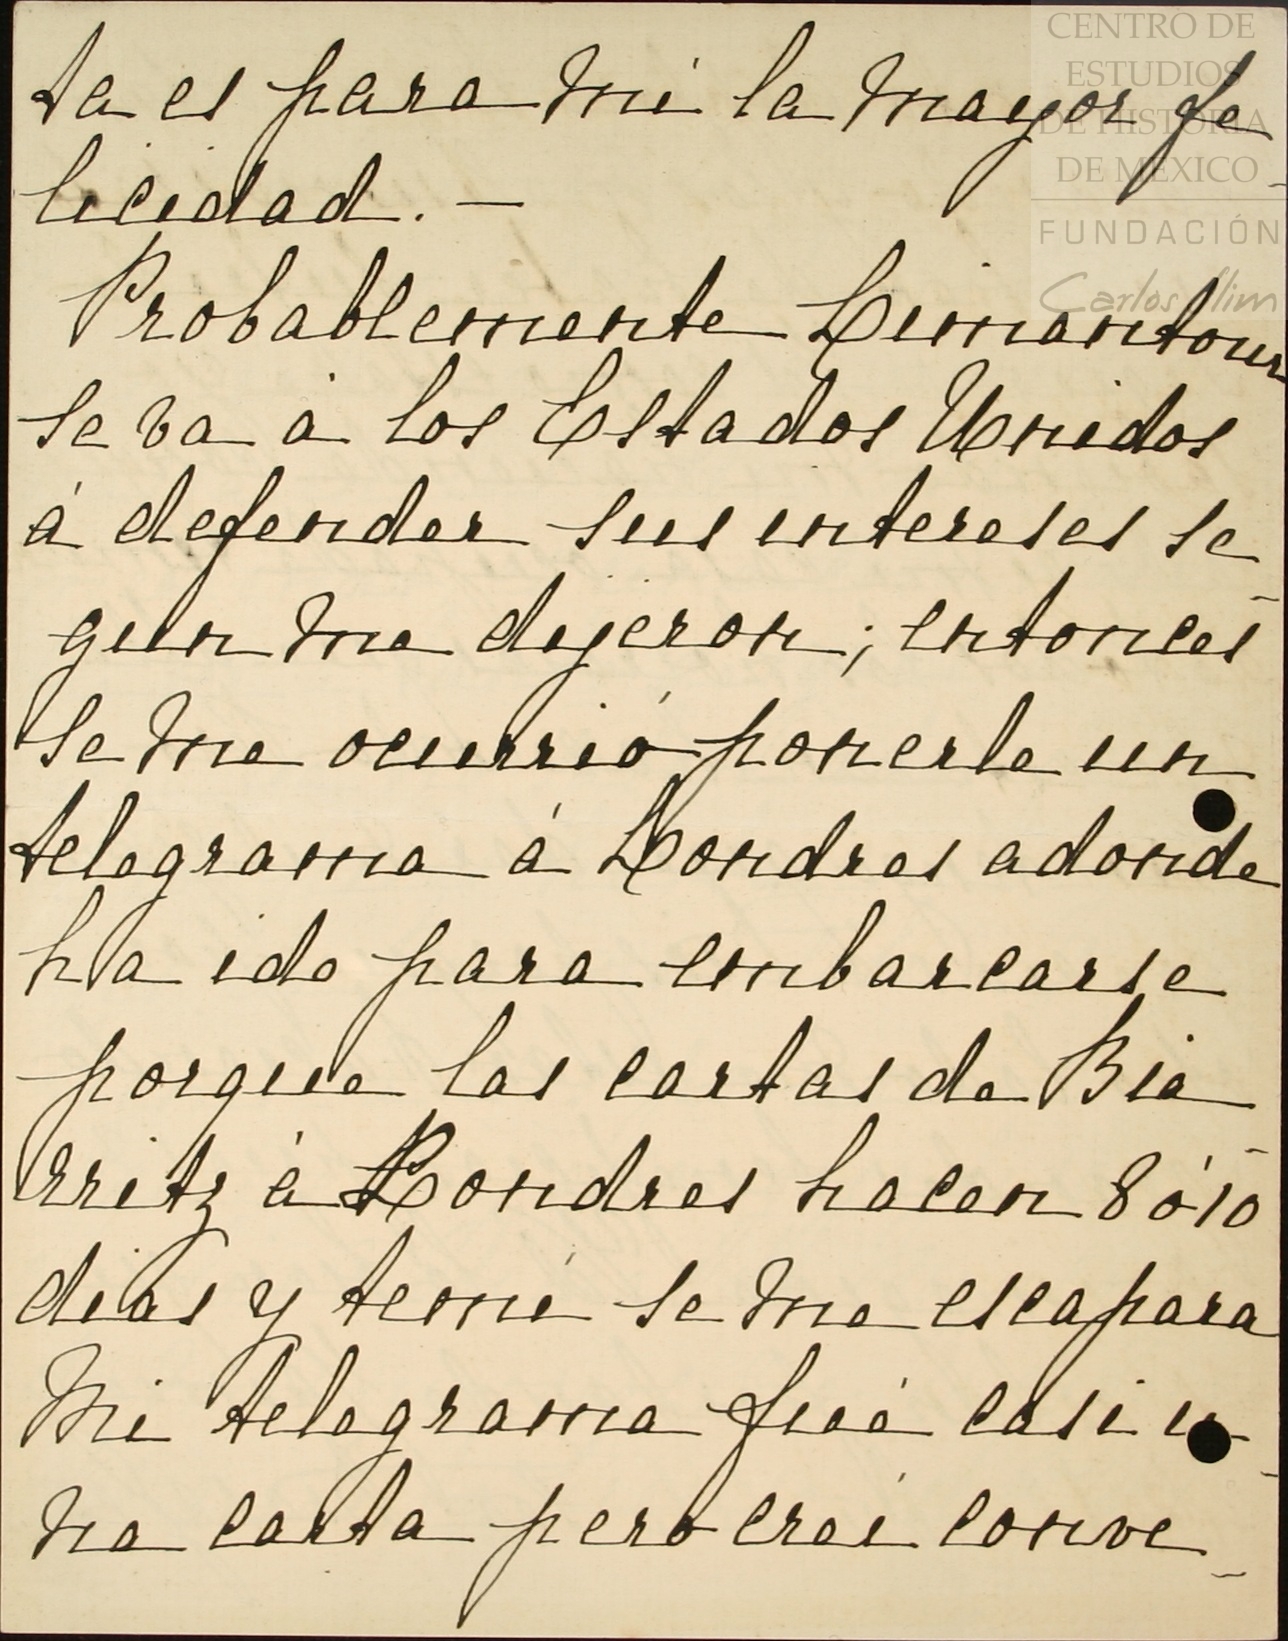 CENTRO DE
ESTUDIOS
DE HISTORIA
DE MÉXICO
FUNDACIÓN
Carlos Slim
ta es para mi la mayor fe
licidad. —
Probablemente Limantour
se va á los Estados Unidos
á defender sus intereses se-
gun me dijeron; entonces
se me ocurrió ponerle un
telegrama á Londres adonde
ha ido para embarcarse
porque las cartas de Bia-
rritz á Londres hacen 8 ó 10
dias y temí se me escapara
Mi telegrama fué casi u-
na carta pero creí conve-